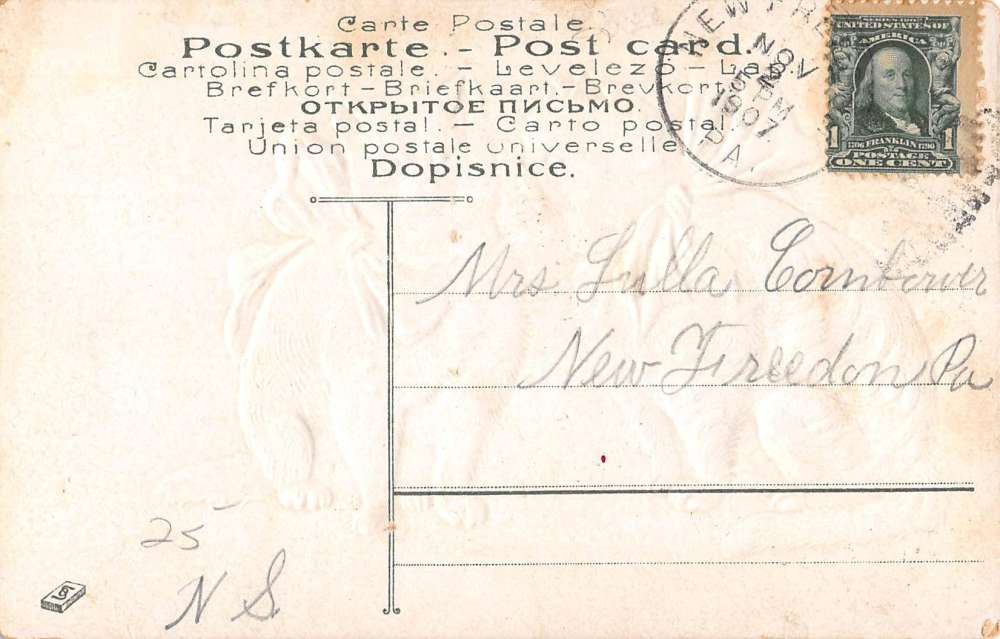 Carte Postale.
Postkarte. - Post card.
Cartolina postale. - Levelező - Lap.
Brefkort - Briefkaart. - Brevkort.
ОТКРЫТОЕ ПИСЬМО.
Tarjeta postal. - Carto postal.
Union postale universelle
Dopisnice.
NEW FRE
NOV
5 PM
1907
PA.
SERIES 1902
UNITED STATES OF
AMERICA
1706 FRANKLIN 1790
1 POSTAGE 1
ONE CENT
Mrs. Lulla Combower
New Freedon Pa
25
N S.